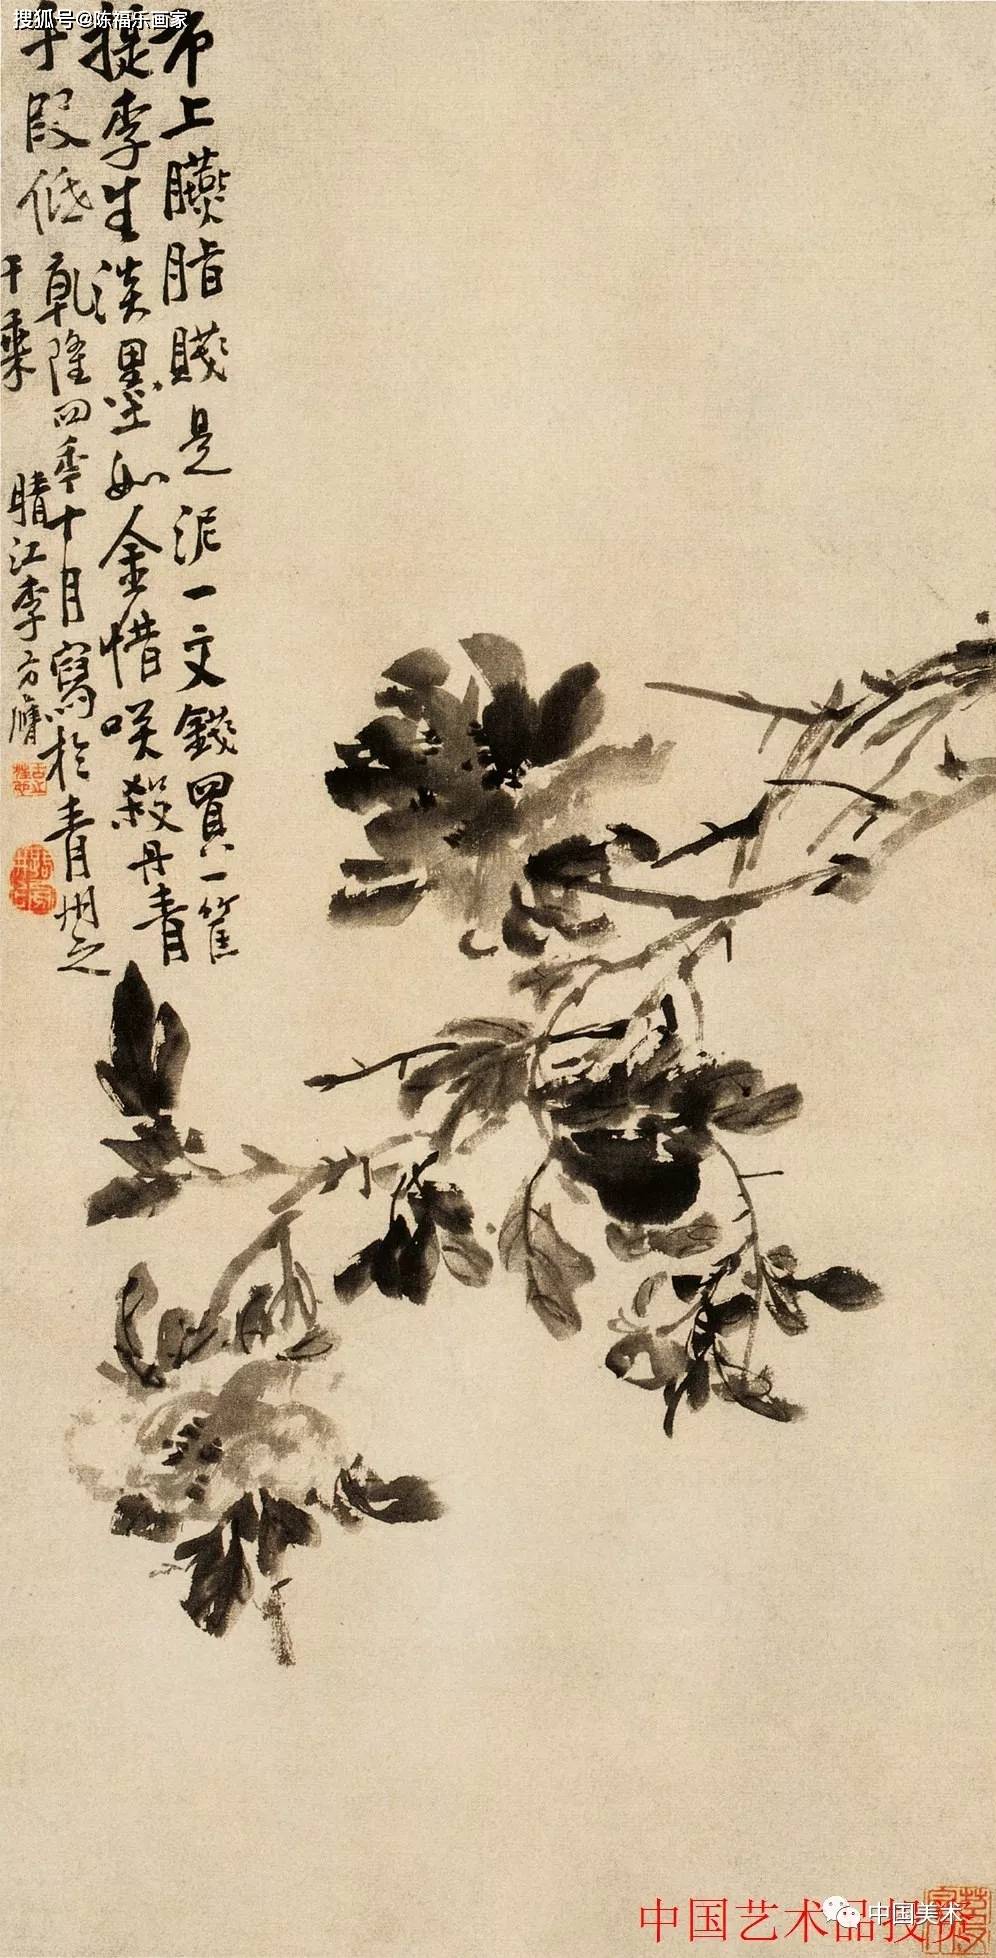 搜狐号@陈福乐画家
市上臙脂賤是泥一文錢買一筐
提李生淡墨如金惜咲殺丹青
手段低
乾隆四秊十月寫於青州之
千乘
晴江李方膺
中国艺术品投
中国美术